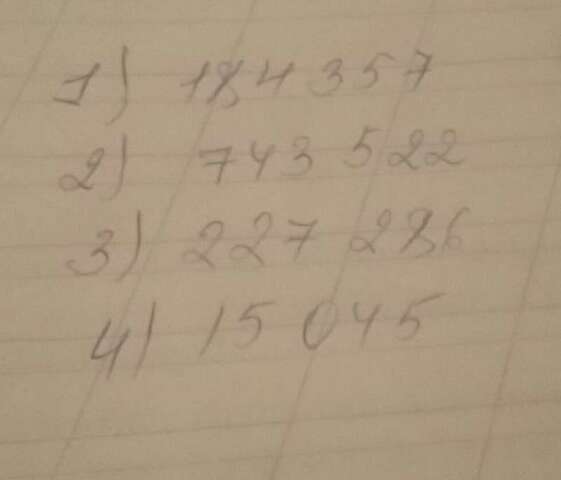 1) 184 357
2) 743 522
3) 227 286
4) 15 045